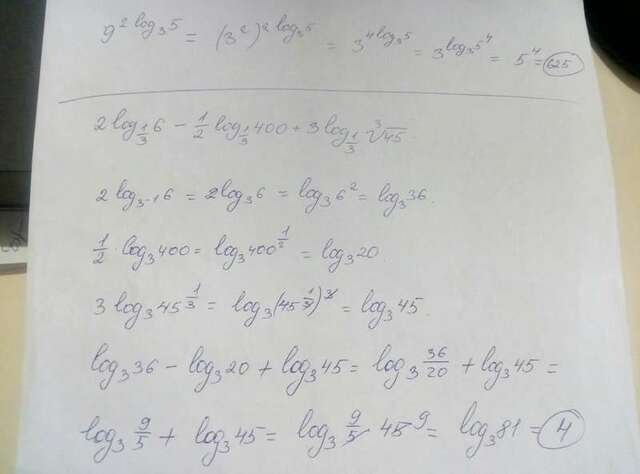 9^{2 log_3 5} = (3^2)^{2 log_3 5} = 3^{4 log_3 5} = 3^{log_3 5^4} = 5^4 = 625
2 log_{1/3} 6 - 1/2 log_{1/3} 400 + 3 log_{1/3} ∛45.
2 log_{3^{-1}} 6 = 2 log_3 6 = log_3 6^2 = log_3 36.
1/2 · log_3 400 = log_3 400^{1/2} = log_3 20.
3 log_3 45^{1/3} = log_3 (45^{1/3})^3 = log_3 45.
log_3 36 - log_3 20 + log_3 45 = log_3 36/20 + log_3 45 =
log_3 9/5 + log_3 45 = log_3 9/5 · 45 9 = log_3 81 = 4